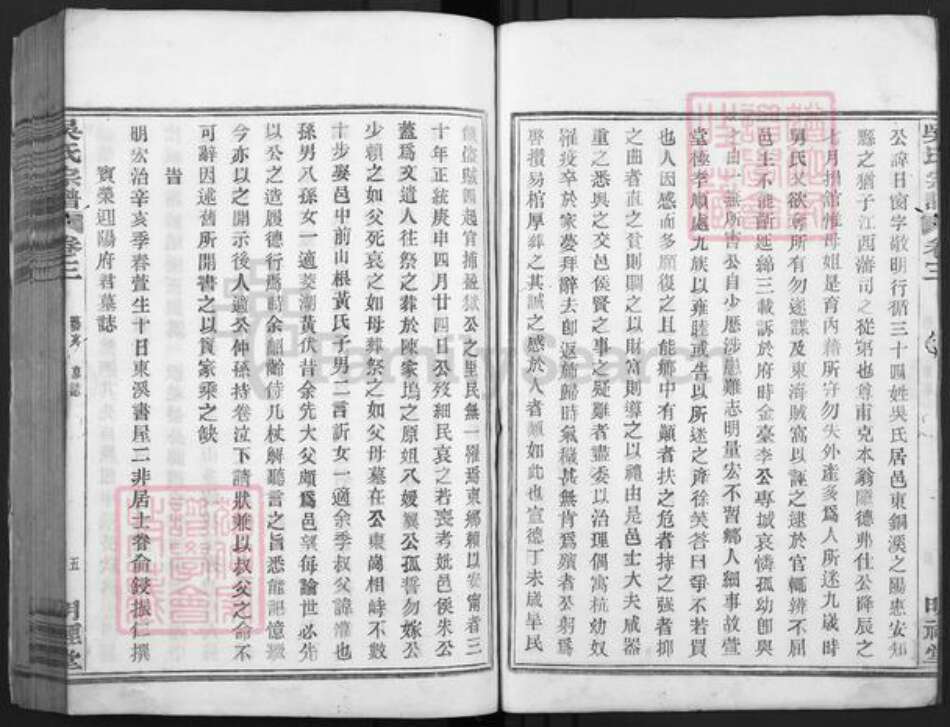 公諱日襄字敬明行循三十四姓吳氏居邑東銅溪之陽惠安知
縣之猶子江西藩司之從弟也尊甫克本翁隱德弗仕公降辰之
七月捐館惟母姐是育內藉所守勿失外產多爲人所迷九歲時
舅氏又欲奪所有勿遂謀及東海賊富以誣之逮於官輒辨不屈
邑主不能斷延綿三載訴於府時金臺李公專城哀憐孤幼卽與
之由一無所害公自少歷涉患難志明量宏不習鄉人細事故萱
堂極孝順處九族以雍睦或告以所迷之產徐笑答曰爭不若買
也人因感而多願復之且能鄉中有顚者扶之危者持之强者
之曲者直之貧則賙之以財富則導之以禮由是邑士大夫咸器
重之悉與之交邑侯賢之事之疑難者盡委以治理偶寓杭幼奴
罹疫卒於家夢拜辭去卽返旆歸時氣穢甚無肯爲殯者公躬爲
啓攢易棺厚葬之其誠之感於人者類如此也宣德丁未歲旱民
饑盜賊四起官捕盈獄公之里民無一罹焉東鄉賴以安甯者三
十年正統庚申四月廿四日公歿細民哀之若喪考妣邑侯朱公
蓋爲文遣人往祭之葬於陳家塢之原姐八媛翼公孤誓勿嫁公
少賴之如父死哀之如母葬祭之如父母墓在公東崗相峙不數
十步娶邑中前山根黃氏子男二言訢女一適余季叔父諱瀖也
孫男八孫女一適菱湖黃伏昔余先大父頗爲邑望每論世必先
以公之造履德行爲時余韶齡侍几杖解聽言之旨悉能記憶
今亦以之開示後人適公仲孫持卷泣下請狀兼以叔父之命不
可辭因述舊所開書之以賁家乘之缺
旹
明宏治辛亥季春萱生十日東溪書屋二非居士眷俞鋟振仁撰
賓榮迎陽府君墓誌
吳氏宗譜
卷三
墓表 墓誌
五
明禋堂